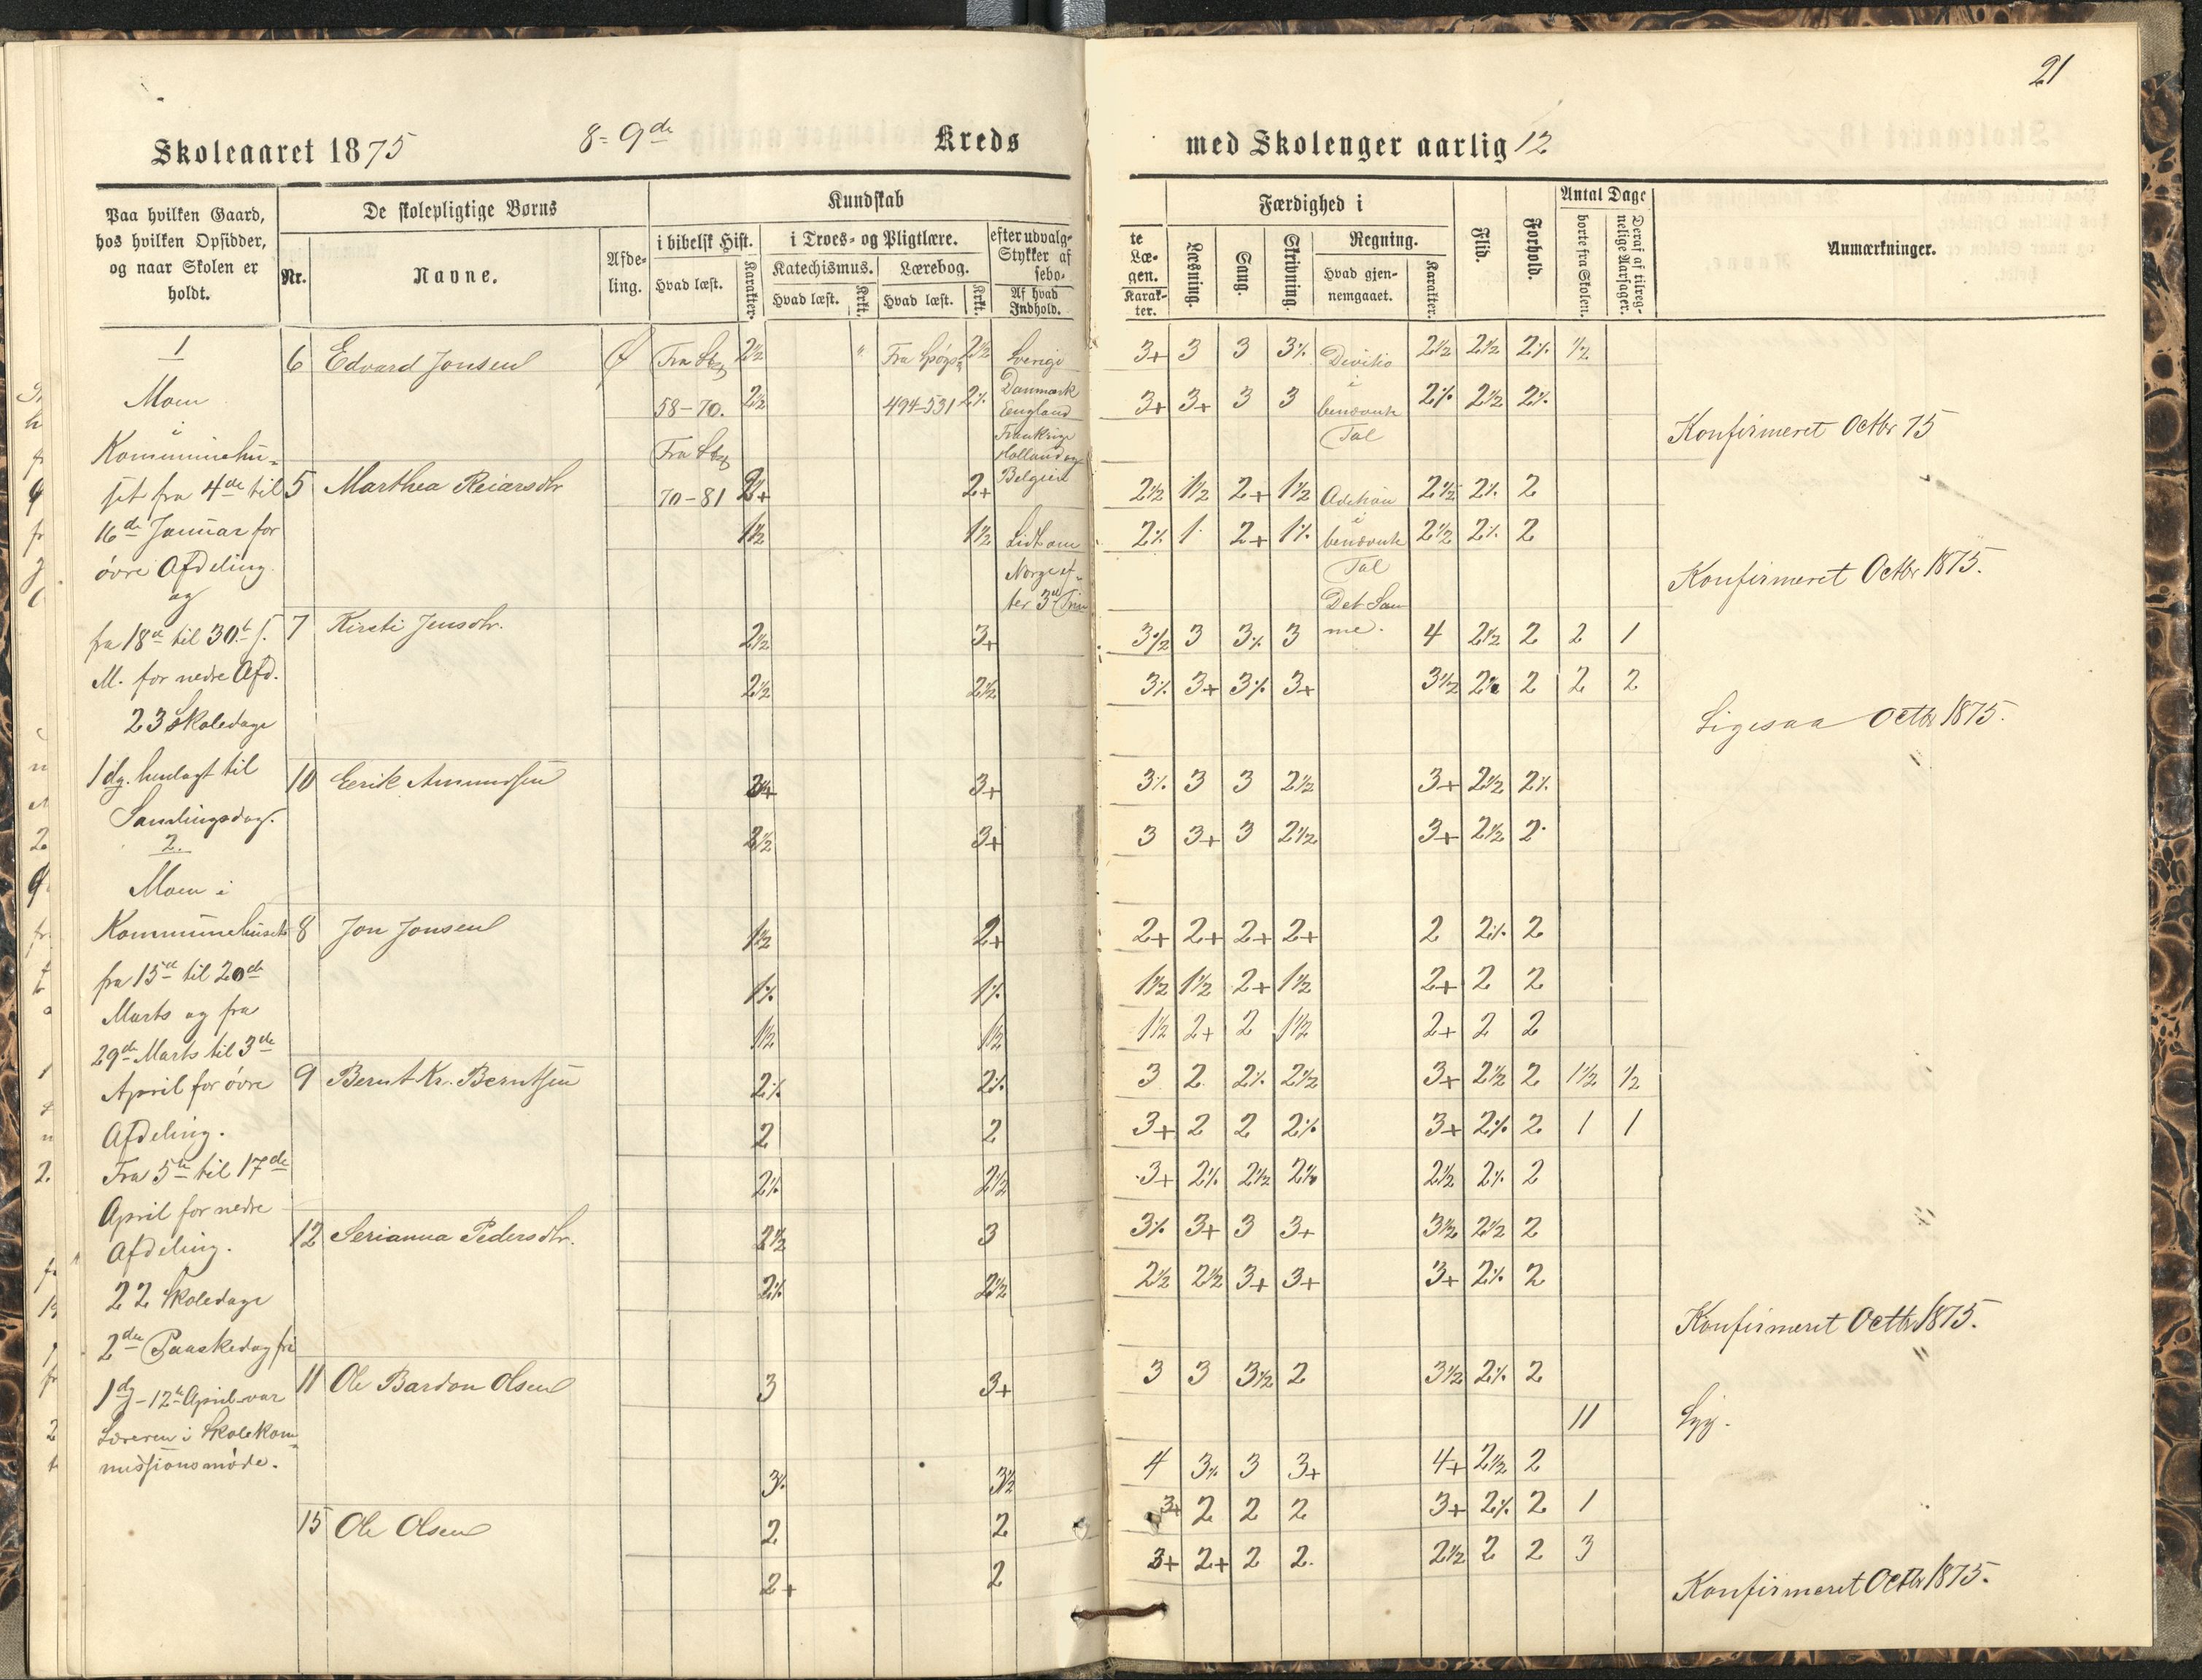 21
Skoleaaret 1875 8-9de Kreds med Skolenger aarlig 12
Paa hvilken Gaard, hos hvilken Opsidder, og naar Skolen er holdt.
De skolepligtige Børns
Nr.
Navne.
Afdeling.
Kundskab
i bibelsk Hist.
Hvad læst.
Karakter.
i Troes- og Pligtlære.
Katechismus.
Hvad læst.
Krkt.
Lærebog.
Hvad læst.
Krkt.
efter udvalgte Stykker af Læsebogen.
Af hvad Indhold.
Karakter.
Færdighed i
Læsning.
Sang.
Skrivning.
Regning.
Hvad gjennemgaaet.
Karakter.
Flid.
Forhold.
Antal Dage
borte fra Skolen.
Deraf af tilregnelige Aarsager.
Anmærkninger.
1
Moen
i
Kommunehu-
set fra 4de til
16de Januar for
øvre Afdeling
og
fra 18de til 30te s.
M. for nedre Afd.
23 Skoledage
1 dg. henlagt til
Samlingsdag.
2.
Moen i
Kommunehuset
fra 15de til 20de
Marts og fra
29de Marts til 3de
April for øvre
Afdeling.
Fra 5te til 17de
April for nedre
Afdeling.
22 Skoledage
2den Paaskedag fri
1 dg - 12te April var
Læreren i Skolekom-
missionsmøde.
6 Edvard Jonsen Ø 2½ 2½ Sverige 3+ 3 3 3½ Divitio 2½ 2½ 2½ ½
58-70. 2½ 494-531 2½ Danmark England 3+ 3+ 3 3 i benævnte 2½ 2½ 2½
Frankrige Holland og Tal Konfirmeret Octbr 75
5 Marthea Reiarsdtr 70-81 2+ 2+ Belgien 2½ 1½ 2+ 1½ Adition 2½ 2½ 2
1½ 1½ Lidt om 2½ 1 2+ 1½ i benævnte 2½ 2½ 2
Norge ef-
ter 3die Trin Tal Det Sam- Konfirmeret Octbr 1875.
7 Kirsti Jensdtr. 2½ 3+ 3½ 3 3½ 3 me. 4 2½ 2 2 1
2½ 2½ 3½ 3+ 3½ 3+ 3½ 2½ 2 2 2
Ligesaa Octbr 1875.
10 Eerik Amundsen 3+ 3+ 3½ 3 3 2½ 3+ 2½ 2½
2½ 3+ 3 3+ 3 2½ 3+ 2½ 2
8 Jon Jonsen 1½ 2+ 2+ 2+ 2+ 2+ 2 2½ 2
1½ 1½ 1½ 1½ 2+ 1½ 2+ 2 2
1½ 1½ 1½ 2+ 2 1½ 2+ 2 2
9 Bernt Kr. Berntsen 2½ 2½ 3 2 2½ 2½ 3+ 2½ 2 1½ ½
2 2 3+ 2 2 2½ 3+ 2½ 2 1 1
2½ 2½ 3+ 2½ 2½ 2½ 2½ 2½ 2
12 Serianna Pedersdtr. 2½ 3 3½ 3+ 3 3+ 3½ 2½ 2
2½ 2½ 2½ 2½ 3+ 3+ 3+ 2½ 2
Konfirmeret Octbr 1875.
11 Ole Bardon Olsen 3 3+ 3 3 3½ 2 3½ 2½ 2
11 Syg.
3½ 3½ 4 3½ 3 3+ 4+ 2½ 2
15 Ole Olsen 2 2 3+ 2 2 2 3+ 2½ 2 1
2+ 2 3+ 2+ 2 2. 2½ 2 2 3
Konfirmeret Octbr 1875.